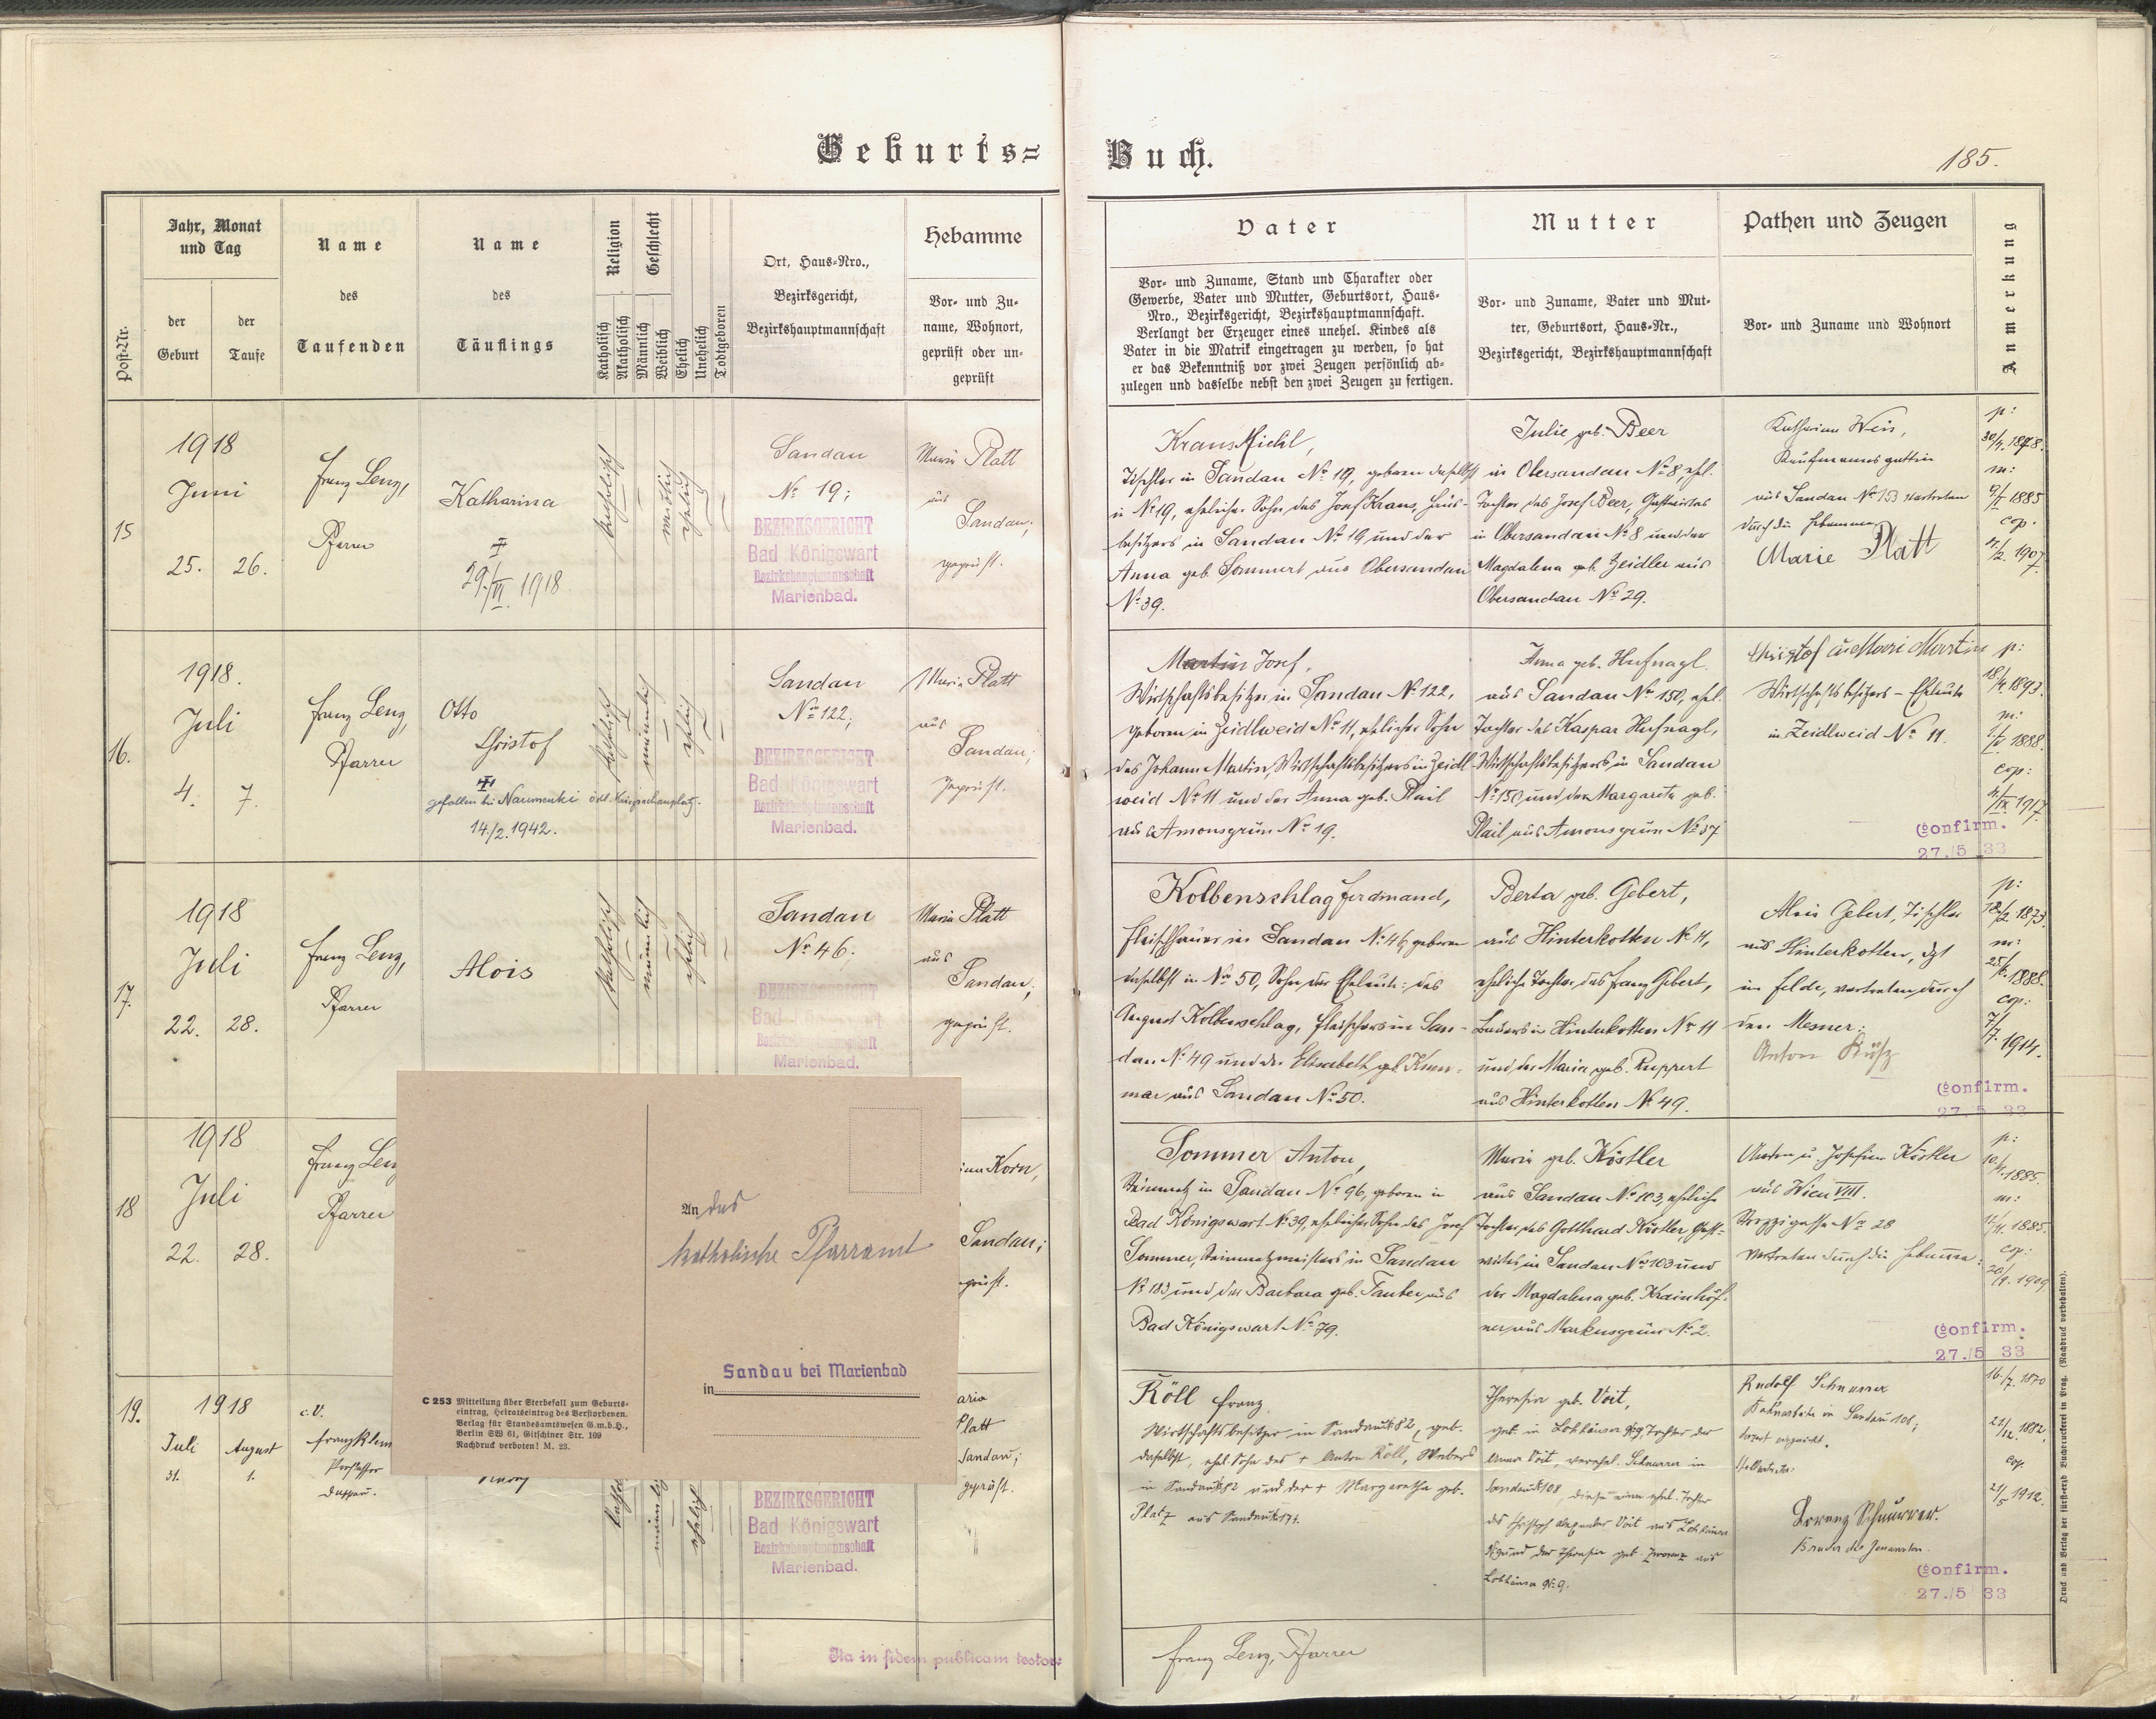 Geburts=
Buch.
185.
Post-Nr.
Jahr, Monat
und Tag
der
Geburt
der
Taufe
Name
des
Taufenden
Name
des
Täuflings
Religion
Katholisch
Akatholisch
Geschlecht
Männlich
Weiblich
Ehelich
Unehelich
Todtgeboren
Ort, Haus-Nro.,
Bezirksgericht,
Bezirkshauptmannschaft
Hebamme
Vor- und Zu-
name, Wohnort,
geprüft oder un-
geprüft
Vater
Vor- und Zuname, Stand und Charakter oder
Gewerbe, Vater und Mutter, Geburtsort, Haus-
Nro., Bezirksgericht, Bezirkshauptmannschaft.
Verlangt der Erzeuger eines unehel. Kindes als
Vater in die Matrik eingetragen zu werden, so hat
er das Bekenntniß vor zwei Zeugen persönlich ab-
zulegen und dasselbe nebst den zwei Zeugen zu fertigen.
Mutter
Vor- und Zuname, Vater und Mut-
ter, Geburtsort, Haus-Nr.,
Bezirksgericht, Bezirkshauptmannschaft
Pathen und Zeugen
Vor- und Zuname und Wohnort
Anmerkung
15
1918
Juni
25. 26.
Franz Lenz,
Pfarrer
Katharina
29./VI. 1918
katholisch
weiblich
ehelich
Sandau
No 19;
BEZIRKSGERICHT
Bad Königswart
Bezirkshauptmannschaft
Marienbad.
Maria Platt
aus
Sandau,
geprüft.
Kraus Michl,
Tischler in Sandau No 19, geboren daselbst
in No 19, ehelicher Sohn des Josef Kraus, Haus-
besitzers in Sandau No 19 und der
Anna geb. Sommert aus Obersandau
No 39.
Julie geb. Beer
in Obersandau No 8, ehel.
Tochter des Josef Beer, Gastwirtes
in Obersandau No 8 und der
Magdalena geb. Zeidler aus
Obersandau No 29.
Katharina Weis,
Kaufmannsgattin
aus Sandau No 153 vertreten
durch die Hebamme
Marie Platt
p:
m:
1885
cop.
1907.
16.
1918.
Juli
4. 7.
Franz Lenz,
Pfarrer
Otto
Christof
gefallen bei Naumenki östl. Kriegsschauplatz.
14./2. 1942.
katholisch
männlich
ehelich
Sandau
No 122;
BEZIRKSGERICHT
Bad Königswart
Bezirkshauptmannschaft
Marienbad.
Maria Platt
aus
Sandau;
geprüft.
Martin Josef,
Wirtschaftsbesitzer in Sandau No 122,
geboren in Zeidlweid No 11, ehelicher Sohn
des Johann Martin, Wirtschaftsbesitzers in Zeidl-
weid No 11 und der Anna geb. Plail
aus Amonsgrün No 19.
Anna geb. Hufnagl.
aus Sandau No 150, ehel.
Tochter des Kaspar Hufnagl,
Wirtschaftsbesitzers in Sandau
No 150 und der Margareta geb.
Plail aus Amonsgrün No 37
Christof u. Mari Martin
Wirtschaftsbesitzers-Eheleute
in Zeidlweid No 11.
p:
1893.
m:
1888.
cop:
1917.
Confirm.
27./5 33
17.
1918
Juli
22. 28.
Franz Lenz,
Pfarrer
Alois
katholisch
männlich
ehelich
Sandau
No 46.
BEZIRKSGERICHT
Bad Königswart
Bezirkshauptmannschaft
Marienbad.
Maria Platt
aus
Sandau;
geprüft.
Kolbenschlag Ferdinand,
Fleischhauer in Sandau No 46, geboren
daselbst in No 50, Sohn der Eheleute: des
August Kolbenschlag, Fleischers in San-
dau No 49 und der Elisabeth geb.
aus Sandau No 50.
Berta geb. Gebert,
aus Hinterkotten No 11,
eheliche Tochter des Franz Gebert,
Bauers in Hinterkotten No 11
und der Maria geb. Ruppert
aus Hinterkotten No 49.
Alois Gebert, Tischler
aus Hinterkotten, dzt
im Felde, vertreten durch
den Mesner:
Anton
p:
1873.
m:
1888.
cop:
7/7. 1914.
Confirm.
27. 5 33
18
1918
Juli
22. 28.
Franz Lenz
Pfarrer
Korn,
Sandau;
geprüft.
Sommer Anton,
Steinmetz in Sandau No 96, geboren in
Bad Königswart No 39, ehelicher Sohn des Josef
Sommer, Steinmetzmeisters in Sandau
No 183 und der Barbara geb. Tauber aus
Bad Königswart No 79.
Maria geb. Köstler
aus Sandau No 103, eheliche
Tochter des Gotthard Köstler, Gast-
wirtes in Sandau No 103 und
der Magdalena geb. Krainhöf-
ner aus Markusgrün No 2.
Anton u. Josefine Köstler
aus Wien VIII.
Strozzigasse No 28
vertreten durch die Hebamme:
p:
1885.
m:
1885.
cop:
1909
Confirm.
27./5 33
An das
katholische Pfarramt
in
Sandau bei Marienbad
C 253 Mitteilung über Sterbefall zum Geburts-
eintrag, Heiratseintrag des Verstorbenen.
Verlag für Standesamtswesen G.m.b.H.,
Berlin SW 61, Gitschiner Str. 109
Nachdruck verboten! M. 23.
19.
1918
Juli August
31. 1.
c. V.
Franz Klem
Professor
männlich
ehelich
BEZIRKSGERICHT
Bad Königswart
Bezirkshauptmannschaft
Marienbad.
Platt
Sandau;
geprüft.
Röll Franz,
Wirtschaftsbesitzer in Sandau No 82, geb.
daselbst, ehel. Sohn des + Anton Röll, Webers
in Sandau No 82 und der + Margaretha geb.
Platz aus Sandau No 171.
Theresia geb. Voit,
geb. in Lohhäuser No 9, Tochter der
Anna Voit, verehel. Schnurrer in
Sandau No 108, diese eine ehel. Tochter
des Christoph Alexander Voit aus Lohhäuser
No 9 und der Theresia geb. aus
Lohhäuser No 9.
Rudolf Schnurrer
Bahnarbeiter in Sandau 108;
Lorenz Schnurrer.
Bruder des Genannten.
16./7. 1870
1882.
cop.
21/5 1912.
Confirm.
27./5 33
Ita in fidem publicam testor:
Franz Lenz, Pfarrer
Druck und Verlag der fürst-erzb. Buchdruckerei in Prag. (Nachdruck vorbehalten).